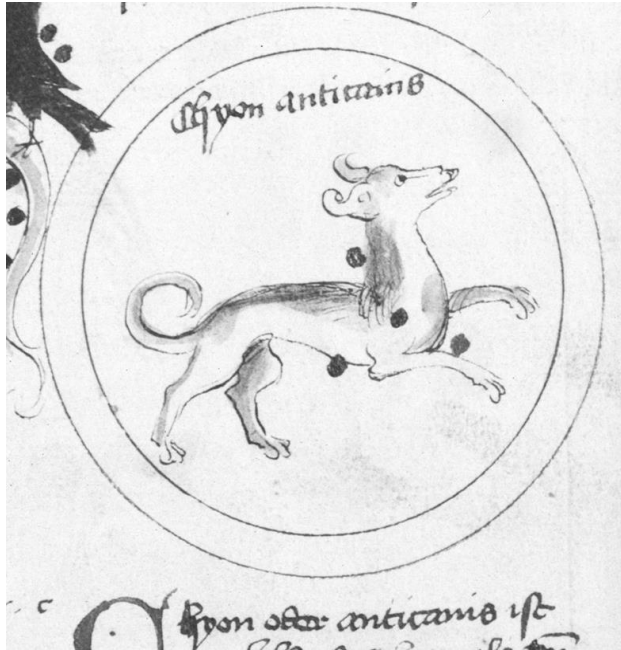 Chyon anticanis
c
Chyon oder anticanis ist